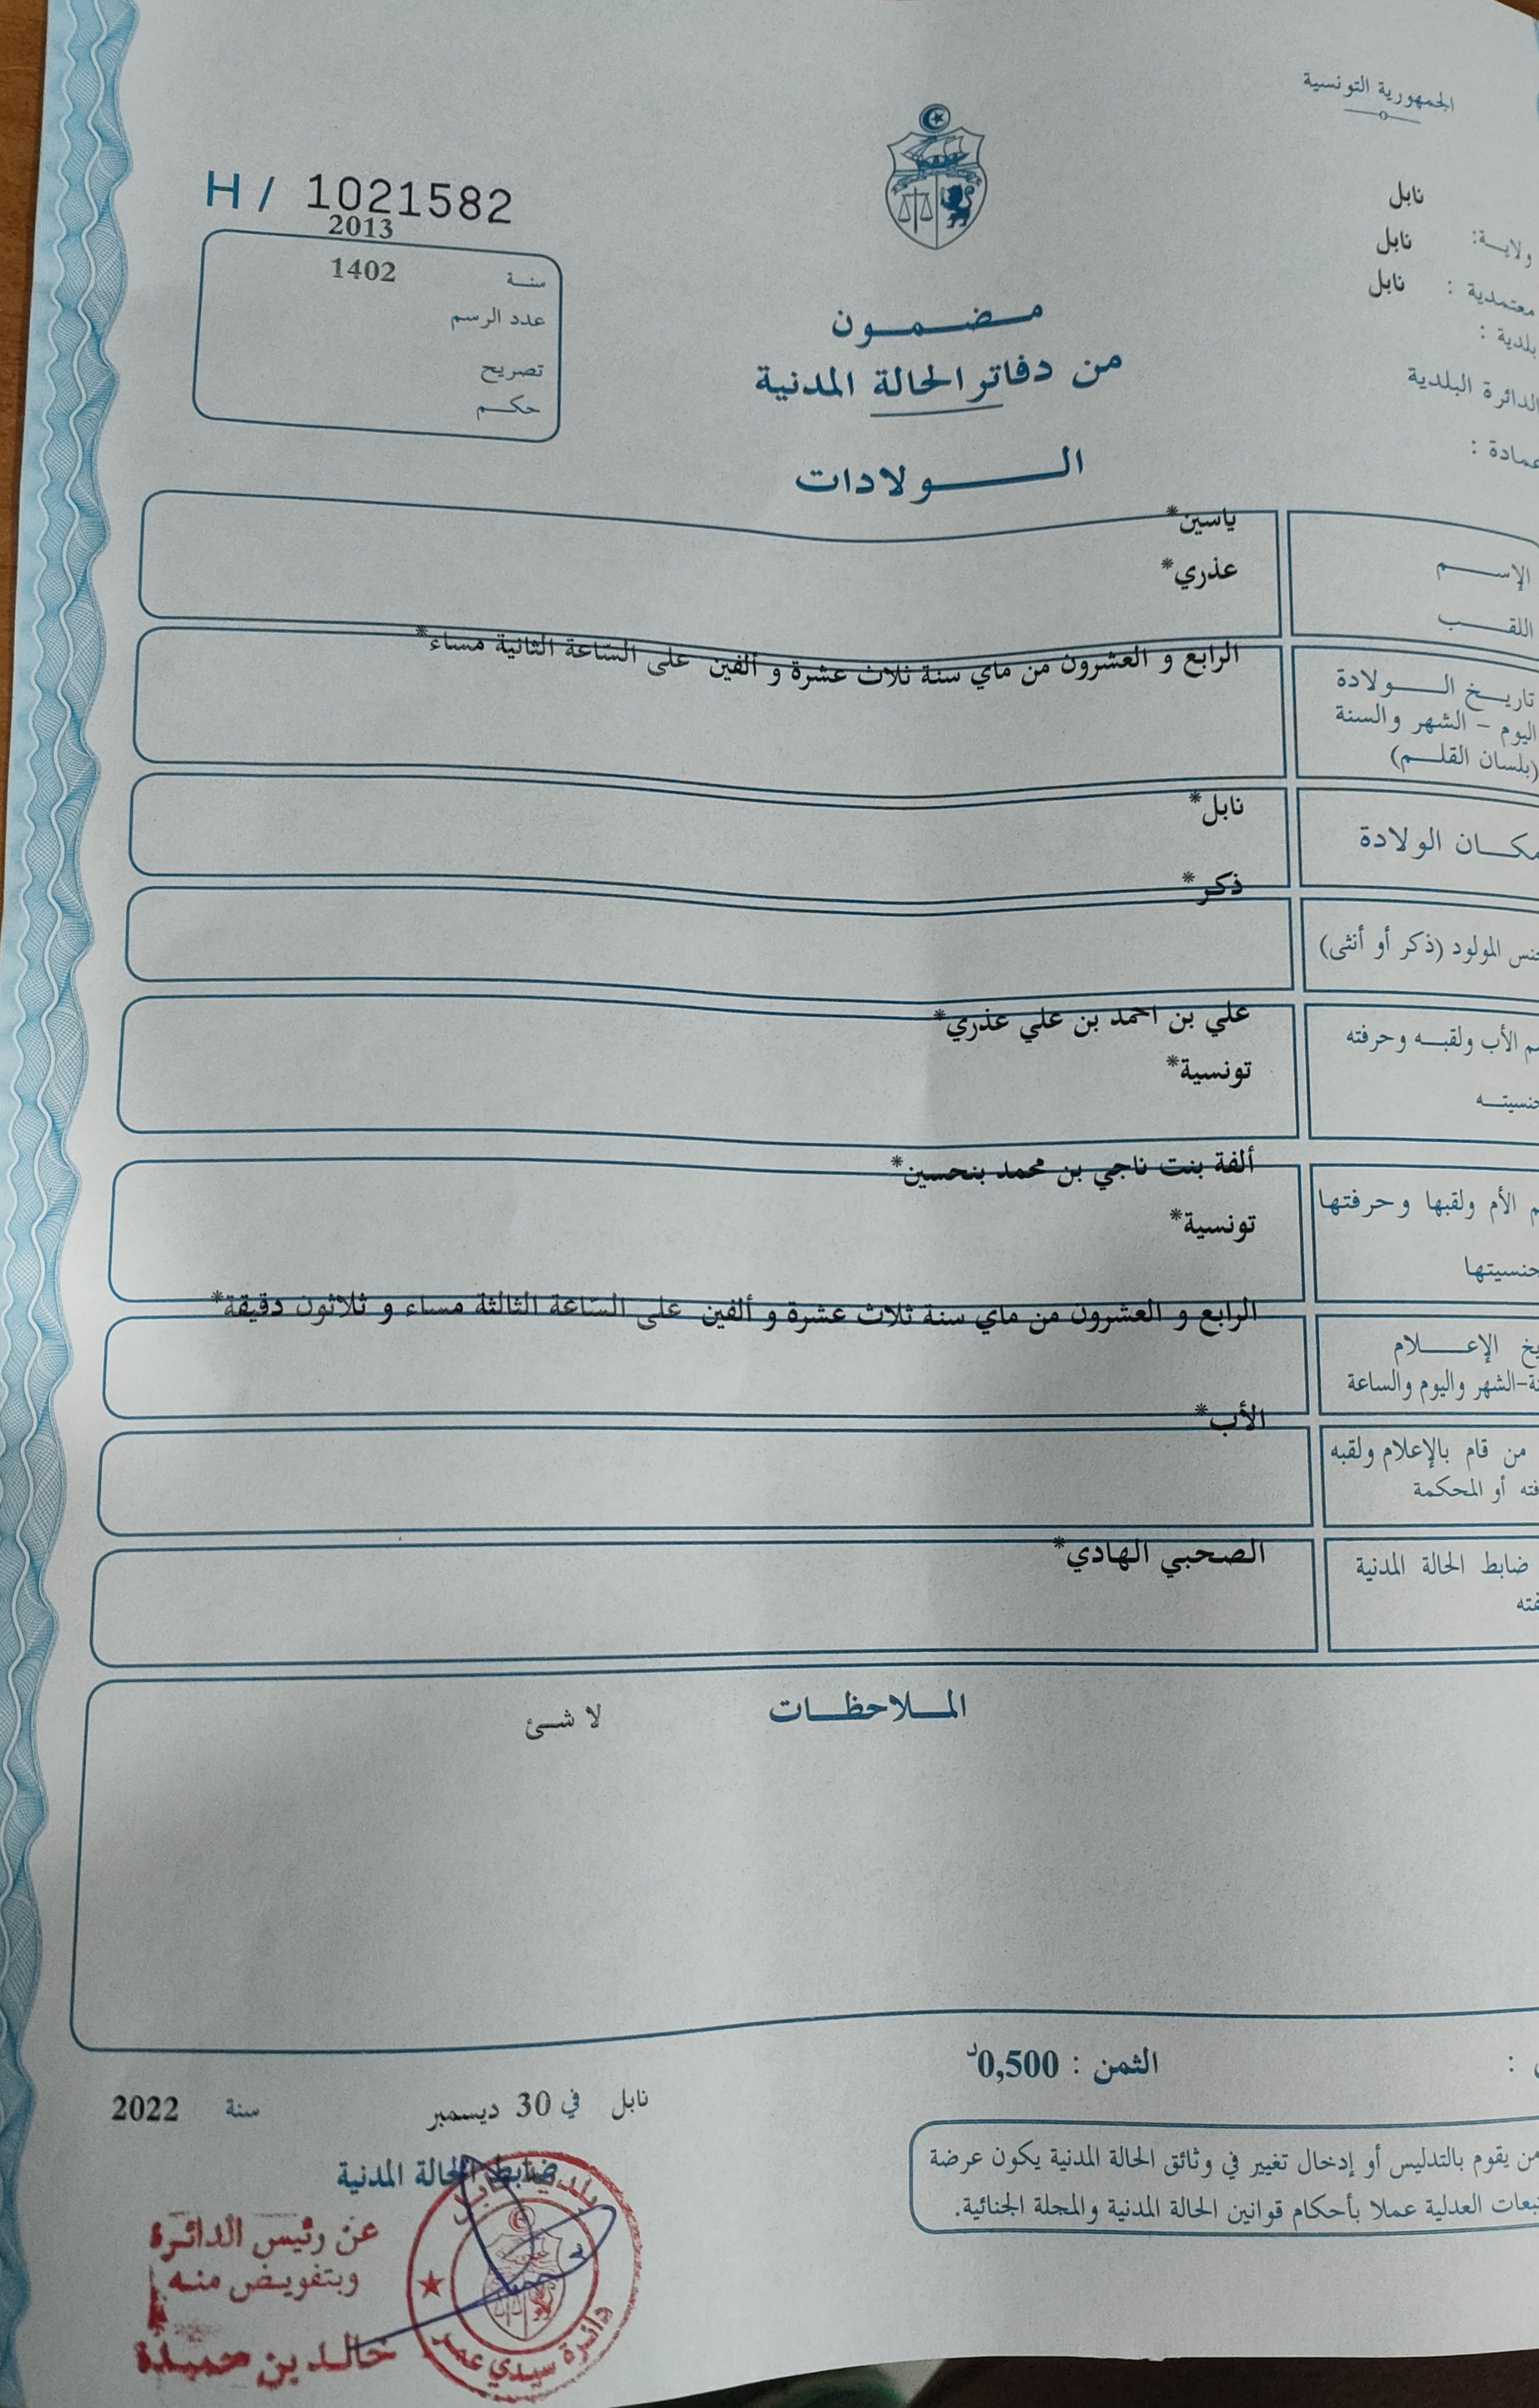 الجمهورية التونسية
H / 1021582
2013
نابل
ولاية: نابل
معتمدية : نابل
بلدية :
الدائرة البلدية
عمادة :
سنة 1402
عدد الرسم
تصريح
حكم
مضمون
من دفاتر الحالة المدنية
الولادات
ياسين*
الإسم
عذري*
اللقب
الرابع و العشرون من ماي سنة ثلاث عشرة و ألفين على الساعة الثانية مساء*
تاريخ الولادة
اليوم - الشهر والسنة
(بلسان القلم)
نابل*
مكان الولادة
ذكر*
جنس المولود (ذكر أو أنثى)
علي بن احمد بن علي عذري*
الأب ولقبه وحرفته
تونسية*
ألفة بنت ناجي بن محمد بنحسين*
الأم ولقبها وحرفتها
تونسية*
الرابع و العشرون من ماي سنة ثلاث عشرة و ألفين على الساعة الثالثة مساء و ثلاثون دقيقة*
الإعلام
الشهر واليوم والساعة
الأب*
من قام بالإعلام ولقبه
أو المحكمة
الصحبي الهادي*
ضابط الحالة المدنية
الملاحظات
لا شئ
الثمن : 0,500د
نابل في 30 ديسمبر سنة 2022
ضابط الحالة المدنية
من يقوم بالتدليس أو إدخال تغيير في وثائق الحالة المدنية يكون عرضة
العدلية عملا بأحكام قوانين الحالة المدنية والمجلة الجنائية.
عن رئيس الدائرة
وبتفويض منه
خالد بن حميدة
بلدية نابل
دائرة سيدي عمر